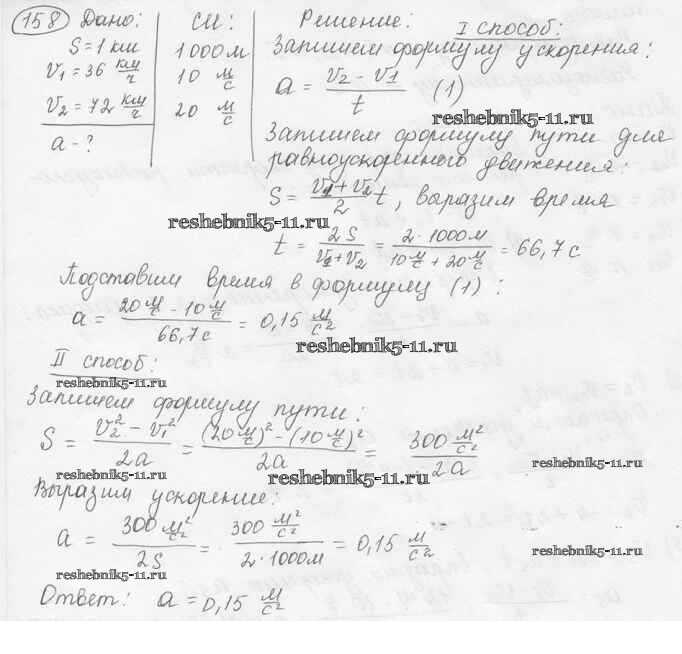 158 Дано:
S = 1 км
V₁ = 36 км/ч
V₂ = 72 км/ч
a - ?
СИ:
1000 м
10 м/с
20 м/с
Решение:
I способ:
Запишем формулу ускорения:
a = (V₂ - V₁)/t (1)
reshebnik5-11.ru
Запишем формулу пути для
равноускоренного движения:
S = (V₁ + V₂)/2 t, выразим время
reshebnik5-11.ru
t = 2S/(V₁ + V₂) = 2·1000м/(10 м/с + 20 м/с) = 66,7 с
Подставим время в формулу (1):
a = (20 м/с - 10 м/с)/66,7 с = 0,15 м/с²
reshebnik5-11.ru
II способ:
reshebnik5-11.ru
Запишем формулу пути:
S = (V₂² - V₁²)/2a = ((20 м/с)² - (10 м/с)²)/2a = 300 м²/с²/2a
reshebnik5-11.ru
reshebnik5-11.ru
reshebnik5-11.ru
Выразим ускорение:
a = 300 м²/с²/2S = 300 м²/с²/2·1000м = 0,15 м/с²
reshebnik5-11.ru
reshebnik5-11.ru
Ответ: a = 0,15 м/с²